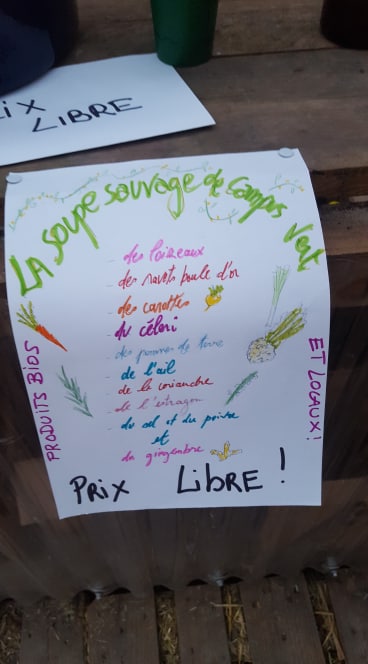 iX
LIBRE
LA soupe sauvage de Camps Vert
- des Poireaux
- des navets boule d'or
- des carottes
- du céleri
- des pommes de terre
- de l'ail
- de la coriandre
- de l'estragon
- du sel et du poivre
et
du gingembre
PRODUITS BIOS
ET LOCAUX!
PRIX LIBRE !